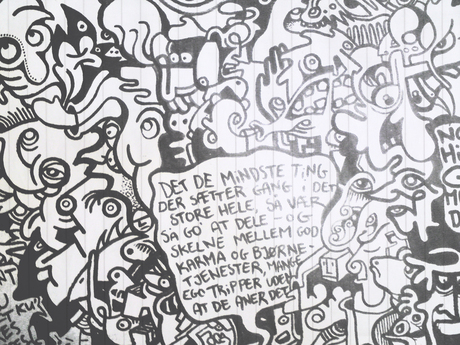 DET DE MINDSTE TING
DER SÆTTER GANG I DET
STORE HELE, SÅ VÆR
SÅ GO' AT DELE - OG
SKELNE MELLEM GOD
KARMA OG BJØRNE-
TJENESTER, MANGE
EGO TRIPPER UDEN
AT DE ANER DET